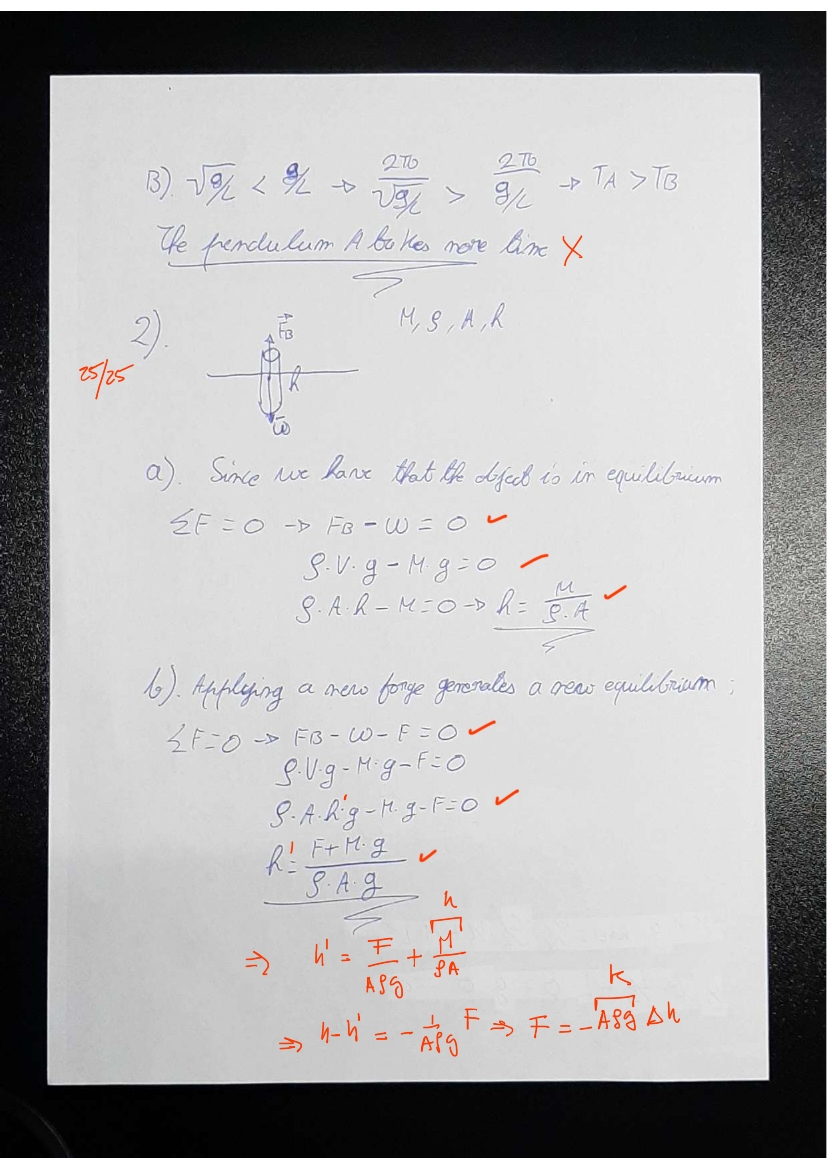 B). √g/L < g/L → 2π/√g/L > 2π/g/L → TA > TB
The pendulum A takes more time X
2). M, ρ, A, h
25/25
F⃗B
h
W⃗
a). Since we have that the object is in equilibrium
ΣF = 0 → FB - W = 0 ✓
ρ.V.g - M.g = 0 ✓
ρ.A.h - M = 0 → h = M/ρ.A ✓
b). Applying a new forge generates a new equilibrium;
ΣF = 0 → FB - W - F = 0 ✓
ρ.V.g - M.g - F = 0
ρ.A.h'g - M.g - F = 0 ✓
h' = F + M.g/ρ.A.g ✓
h
⇒ h' = F/Aρg + M/ρA
K
⇒ h - h' = - 1/Aρg F ⇒ F = - Aρg Δh